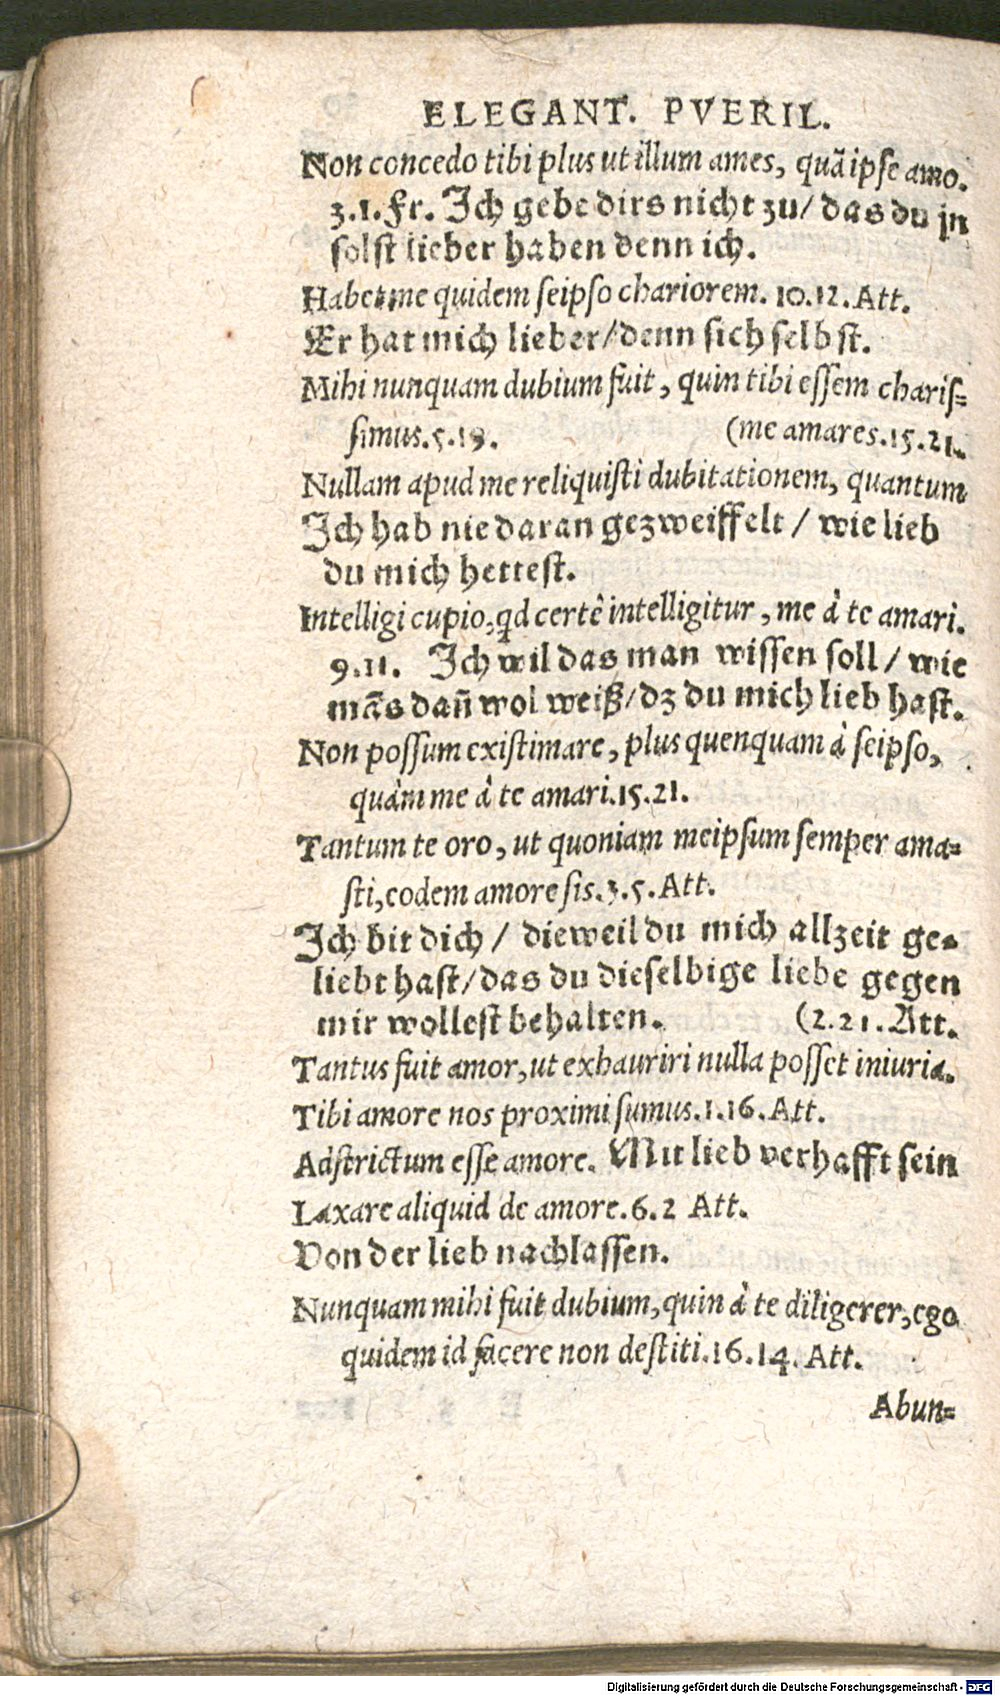 ELEGANT. PVERIL.
Non concedo tibi plus ut illum ames, quā ipse amo.
3.1.Fr. Ich gebe dirs nicht zu/ das du jn
solst lieber haben denn ich.
Habet me quidem seipso chariorem. 10.12. Att.
Er hat mich lieber/denn sich selbst.
Mihi nunquam dubium fuit, quin tibi essem charis-
simus.5.19. (me amares.15.21.
Nullam apud me reliquisti dubitationem, quantum
Ich hab nie daran gezweiffelt / wie lieb
du mich hettest.
Intelligi cupio, qd certè intelligitur, me à te amari.
9.11. Ich wil das man wissen soll/ wie
mās dañ wol weiß/dz du mich lieb hast.
Non possum existimare, plus quenquam à seipso,
quàm me à te amari.15.21.
Tantum te oro, ut quoniam meipsum semper ama-
sti, eodem amore sis.3.5. Att.
Ich bit dich/ dieweil du mich allzeit ge-
liebt hast/das du dieselbige liebe gegen
mir wollest behalten. (2.21. Att.
Tantus fuit amor, ut exhauriri nulla posset iniuria.
Tibi amore nos proximi sumus.1.16. Att.
Adstrictum esse amore. Mit lieb verhafft sein
Laxare aliquid de amore.6.2 Att.
Von der lieb nachlassen.
Nunquam mihi fuit dubium, quin à te diligerer, ego
quidem id facere non destiti.16.14. Att.
Abun-
Digitalisierung gefördert durch die Deutsche Forschungsgemeinschaft - DFG